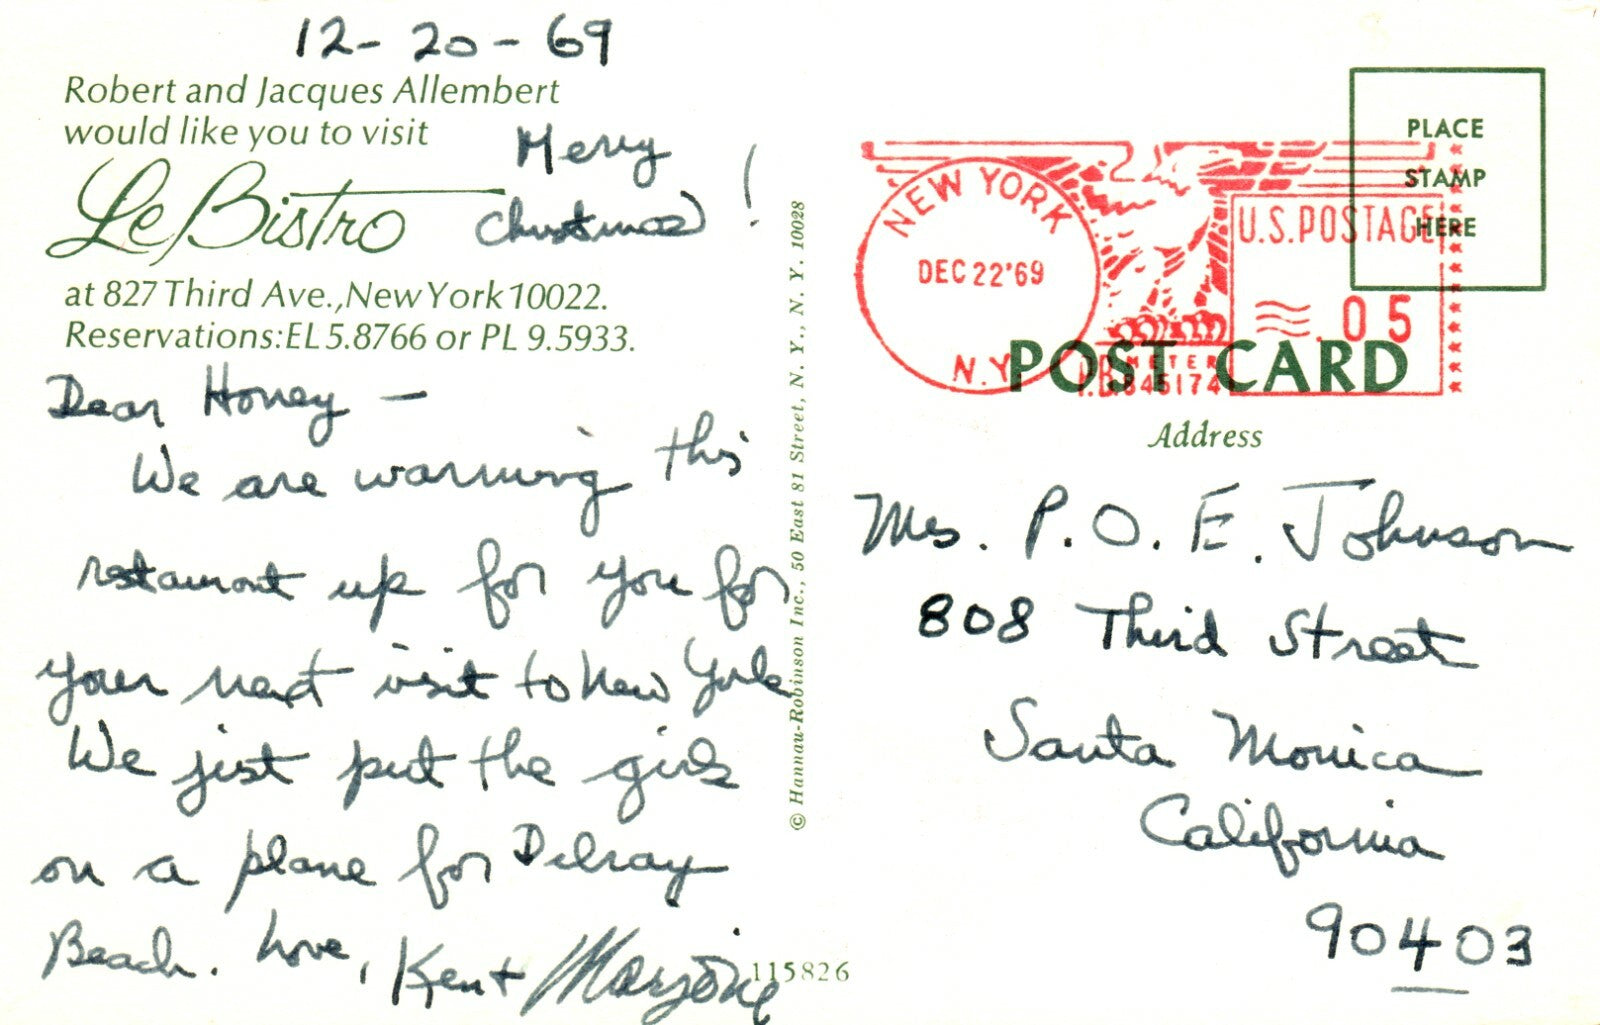 12-20-69
Robert and Jacques Allembert
would like you to visit
Le Bistro
at 827 Third Ave., New York 10022.
Reservations: EL 5.8766 or PL 9.5933.
Merry
Christmas!
Dear Honey —
We are warming this
restaurant up for you for
your next visit to New York
We just put the girls
on a plane for Delray
Beach. Love, Ken + Marjorie
© Hannau-Robinson Inc., 50 East 81 Street, N. Y., N. Y. 10028
115826
PLACE
STAMP
HERE
NEW YORK
DEC 22'69
N.Y.
U.S. POSTAGE
.05
METER
P.B. 846174
POST CARD
Address
Mrs. P. O. E. Johnson
808 Third Street
Santa Monica
California
90403